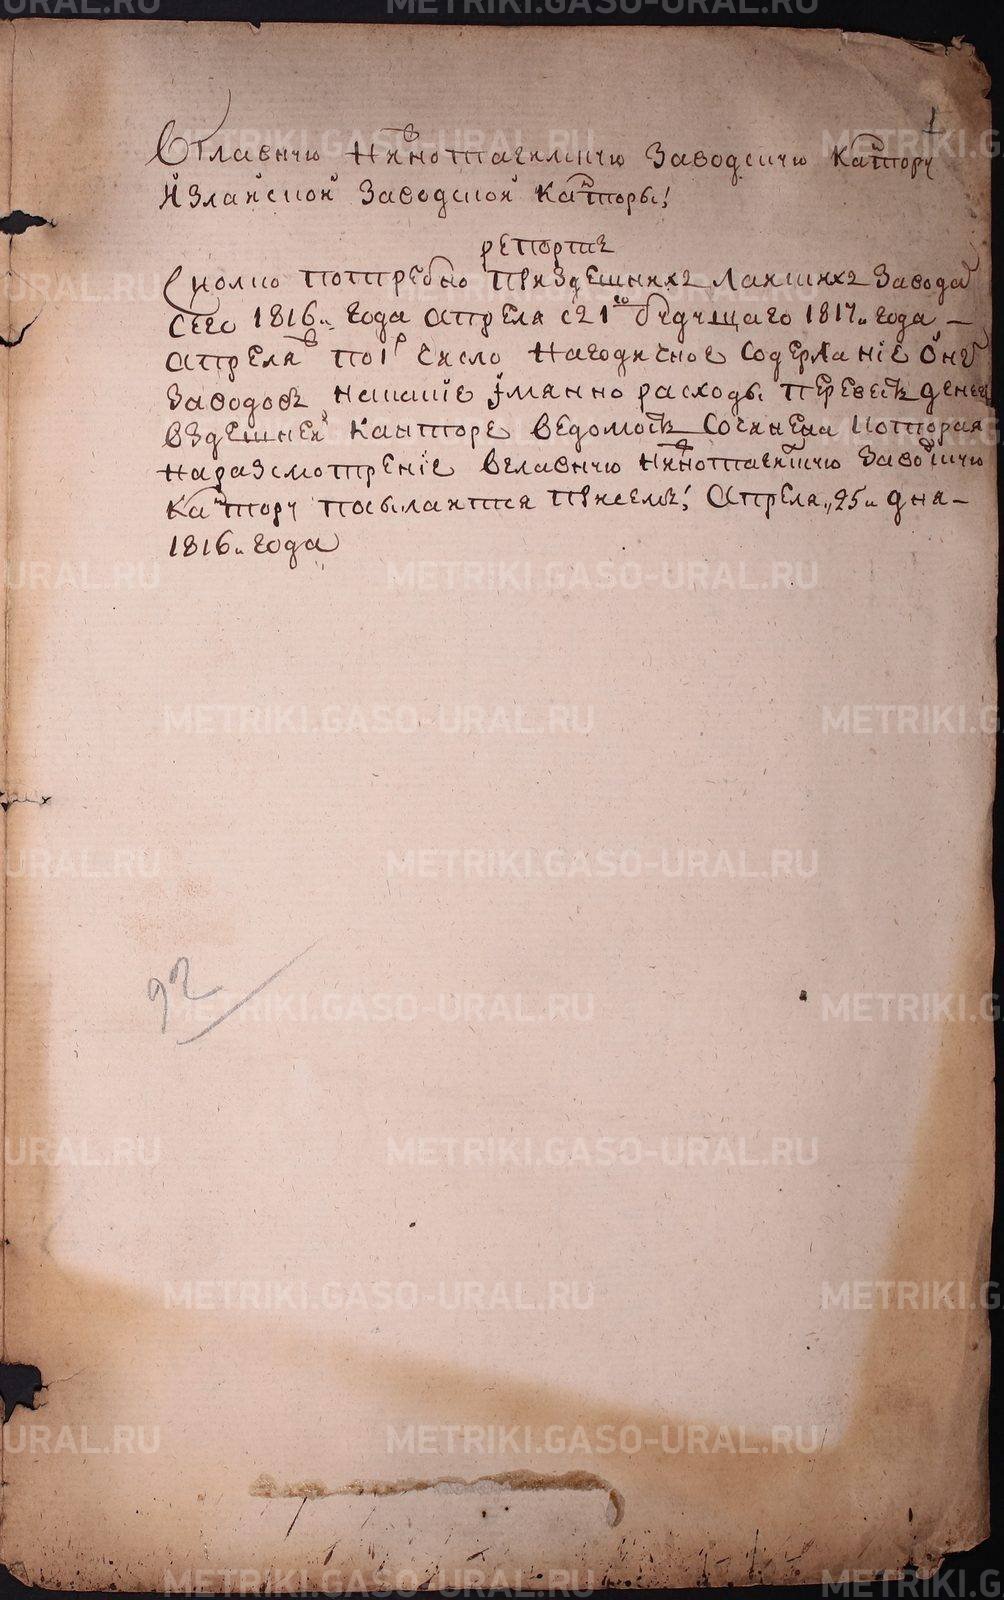 1
Вглавную Нижнотагилскую Заводскую Кантору
Изланской Заводской Канторы!
репортъ
Сколко потребно призdешнихъ Лаишихъ Завода
Сего 1816 „ Года апреля с 1го будущаго 1817 „ года —
апреля по 1 число нагодичное Содержание оныхъ
Заводовъ накаше имянно расходы. Перевесть денегъ
вздешней Канторе ведомость Сочинена которая
наразсмотрение вглавную Нижнотагилскую Заводскую
Кантору посылается присемъ! Апреля „ 25 „ дня —
1816 „ года
92
METRIKI.GASO-URAL.RU